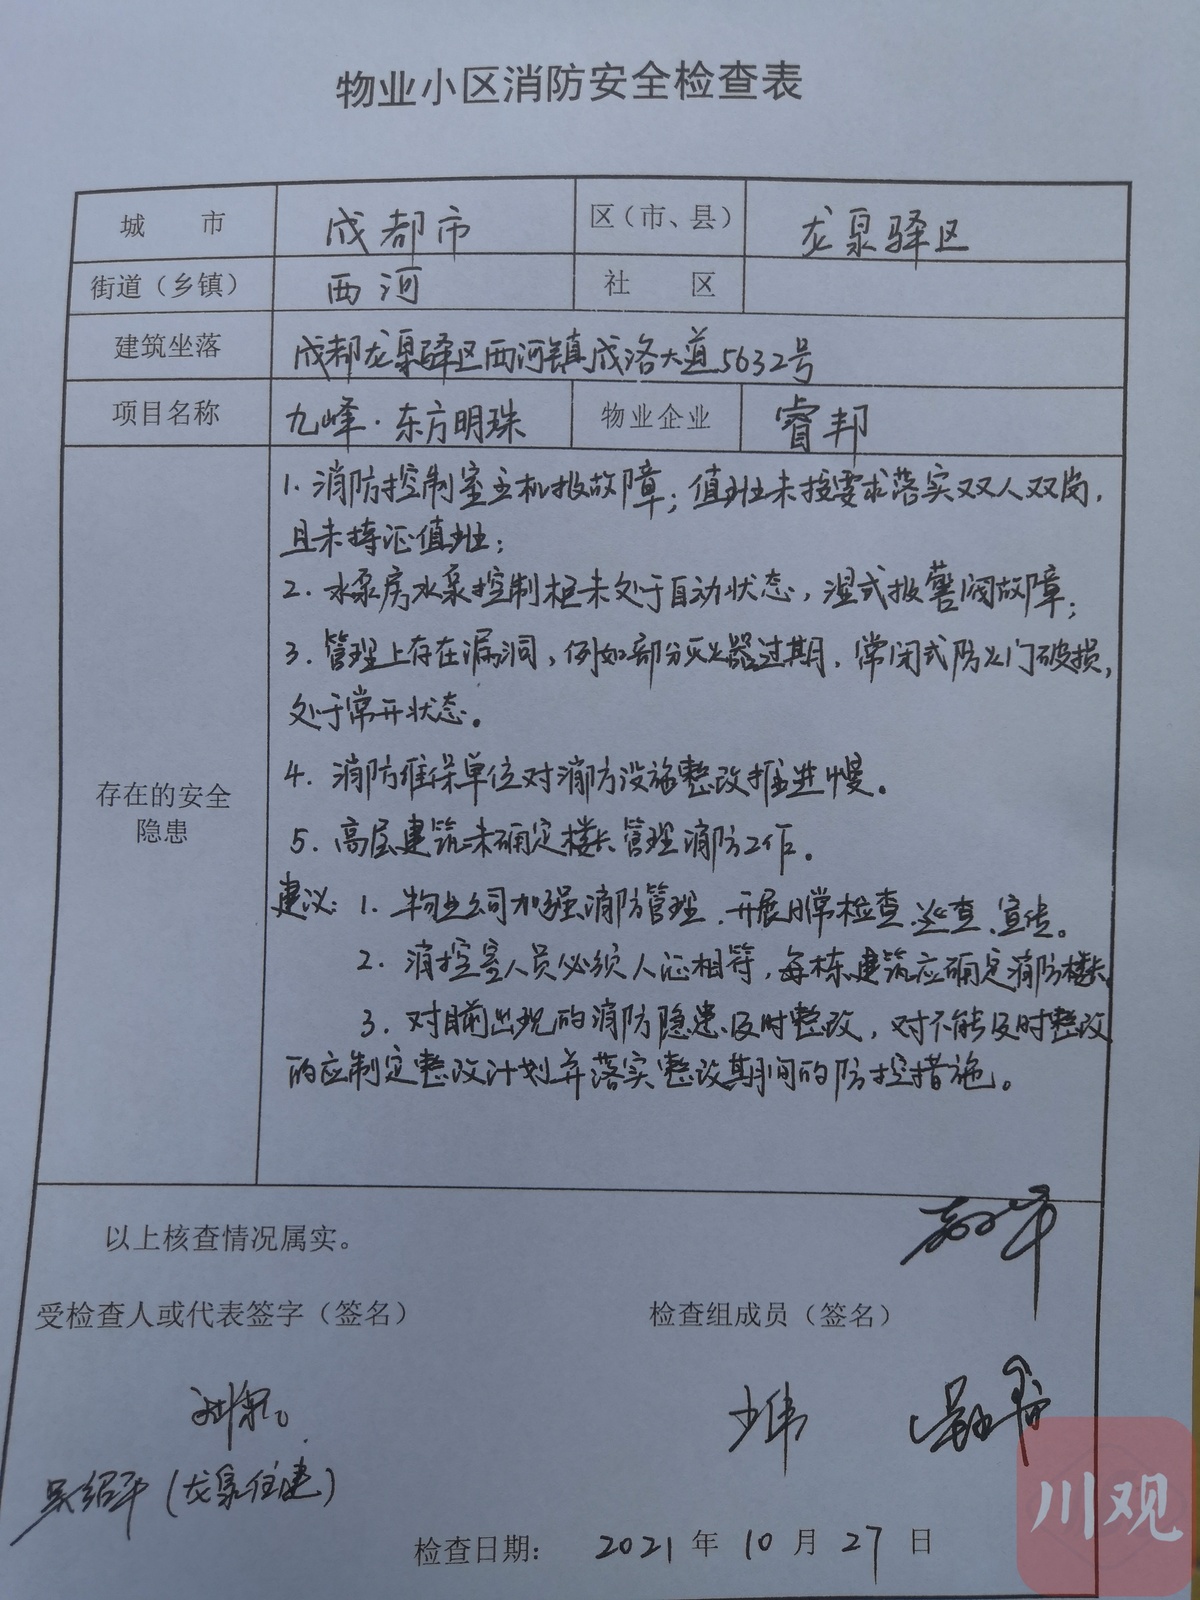 物业小区消防安全检查表
城 市 成都市 区（市、县） 龙泉驿区
街道（乡镇） 西河 社 区
建筑坐落 成都龙泉驿区西河镇成洛大道5632号
项目名称 九峰·东方明珠 物业企业 睿邦
存在的安全
隐患
1. 消防控制室主机报故障；值班未按要求落实双人双岗，
且未持证值班；
2. 水泵房水泵控制柜未处于自动状态，湿式报警阀故障；
3. 管理上存在漏洞，例如部分灭火器过期，常闭式防火门破损，
处于常开状态。
4. 消防维保单位对消防设施整改推进慢。
5. 高层建筑未确定楼长管理消防工作。
建议：1. 物业公司加强消防管理，开展日常检查、巡查、宣传。
2. 消控室人员必须人证相符，每栋建筑应确定消防楼长
3. 对目前出现的消防隐患及时整改，对不能及时整改
的应制定整改计划并落实整改期间的防控措施。
以上核查情况属实。
受检查人或代表签字（签名） 检查组成员（签名）
吴绍平（龙泉住建）
检查日期： 2021 年 10 月 27 日
川观